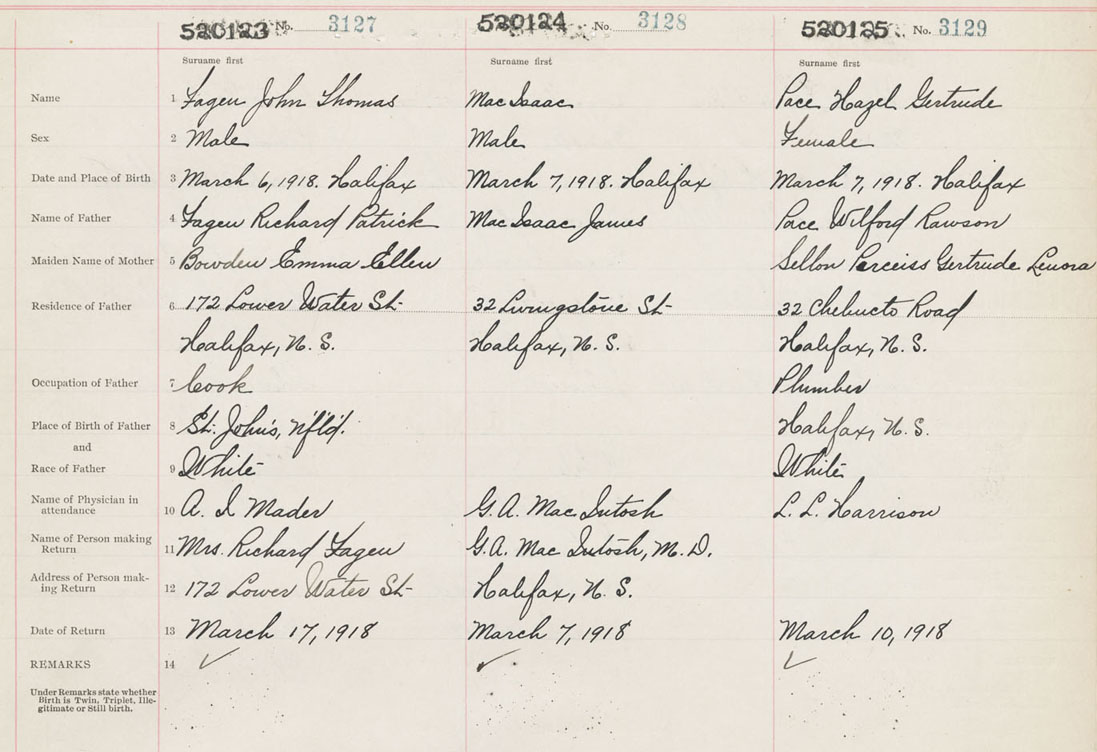 520123 No. 3127 520124 No. 3128 520125 No. 3129
Surname first Surname first Surname first
Name 1 Fagen John Thomas Mac Isaac Pace Hazel Gertrude
Sex 2 Male Male Female
Date and Place of Birth 3 March 6, 1918. Halifax March 7, 1918. Halifax March 7, 1918. Halifax
Name of Father 4 Fagen Richard Patrick Mac Isaac James Pace Wilford Rawson
Maiden Name of Mother 5 Bowden Emma Ellen Sellon Gertrude Lenora
Residence of Father 6 172 Lower Water St 32 Livingstone St 32 Chebucto Road
Halifax, N. S. Halifax, N. S. Halifax, N. S.
Occupation of Father 7 Cook Plumber
Place of Birth of Father 8 St. John's, Nf'l'd. Halifax, N. S.
and
Race of Father 9 White White
Name of Physician in
attendance 10 A. I Mader G. A. Mac Intosh L. L. Harrison
Name of Person making
Return 11 Mrs. Richard Fagen G. A. Mac Intosh, M. D.
Address of Person mak-
ing Return 12 172 Lower Water St Halifax, N. S.
Date of Return 13 March 17, 1918 March 7, 1918 March 10, 1918
REMARKS 14 ✓ ✓ ✓
Under Remarks state whether
Birth is Twin, Triplet, Ille-
gitimate or Still birth.